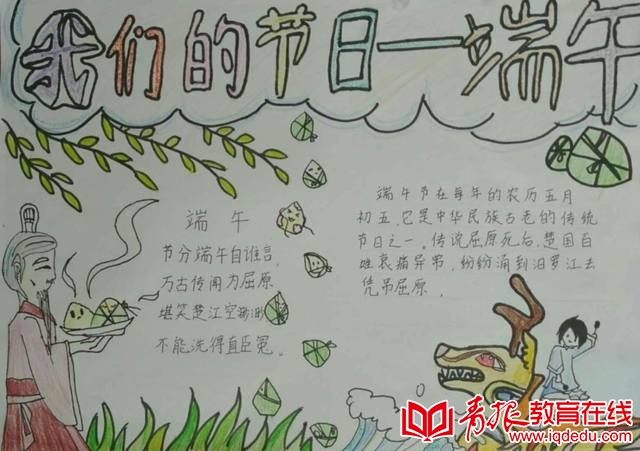 我们的节日一端午
端午
节分端午自谁言，
万古传闻为屈原
堪笑楚江空渺渺
不能洗得直臣冤。
端午节在每年的农历五月
初五,它是中华民族古老的传统
节日之一。传说屈原死后,楚国百
姓哀痛异常,纷纷涌到汨罗江去
凭吊屈原.
青报教育在线
www.iqdedu.com